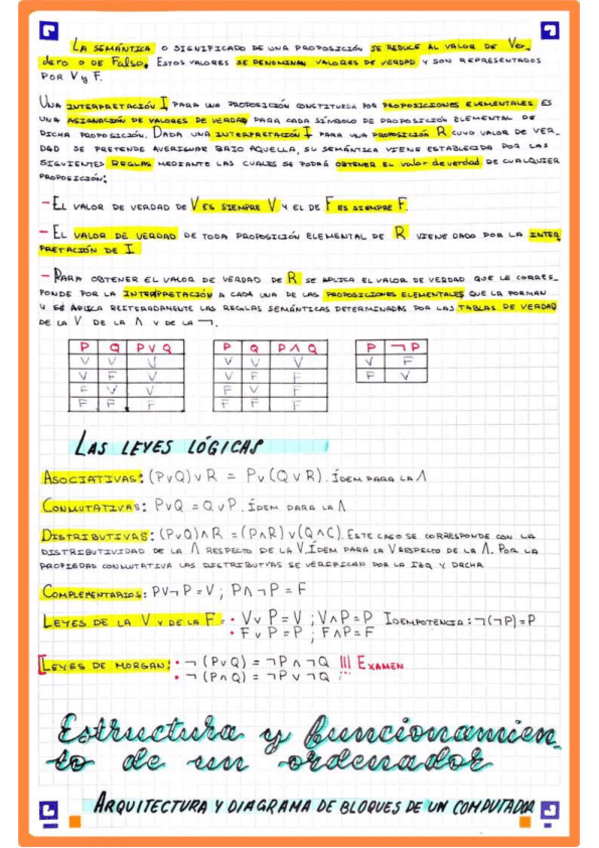 LA SEMÁNTICA O SIGNIFICADO DE UNA PROPOSICIÓN SE REDUCE AL VALOR DE Ver-
dero o de Falso. ESTOS VALORES SE DENOMINAN VALORES DE VERDAD Y SON REPRESENTADOS
POR V y F.
UNA INTERPRETACIÓN I PARA UNA PROPOSICIÓN CONSTITUIDA POR PROPOSICIONES ELEMENTALES ES
UNA ASIGNACIÓN DE VALORES DE VERDAD PARA CADA SÍMBOLO DE PROPOSICIÓN ELEMENTAL DE
DICHA PROPOSICIÓN. DADA UNA INTERPRETACIÓN I PARA UNA PROPOSICIÓN R CUYO VALOR DE VER-
DAD SE PRETENDE AVERIGUAR BAJO AQUELLA, SU SEMÁNTICA VIENE ESTABLECIDA POR LAS
SIGUIENTES REGLAS MEDIANTE LAS CUALES SE PODRÁ OBTENER EL valor de verdad DE CUALQUIER
PROPOSICIÓN:
- EL VALOR DE VERDAD DE V ES SIEMPRE V Y EL DE F ES SIEMPRE F.
- EL VALOR DE VERDAD DE TODA PROPOSICIÓN ELEMENTAL DE R VIENE DADO POR LA INTER
PRETACIÓN DE I
- PARA OBTENER EL VALOR DE VERDAD DE R SE APLICA EL VALOR DE VERDAD QUE LE CORRES-
PONDE POR LA INTERPRETACIÓN A CADA UNA DE LAS PROPOSICIONES ELEMENTALES QUE LA FORMAN
Y SE APLICA REITERADAMENTE LAS REGLAS SEMÁNTICAS DETERMINADAS POR LAS TABLAS DE VERDAD
DE LA V DE LA Λ Y DE LA ¬.
P Q P V Q
V V V
V F V
F V V
F F F
P Q P Λ Q
V V V
V F F
F V F
F F F
P ¬P
V F
F V
LAS LEYES LÓGICAS
ASOCIATIVAS: (PvQ)vR = Pv(QvR). ÍDEM PARA LA Λ
CONMUTATIVAS: PvQ = QvP. ÍDEM PARA LA Λ
DISTRIBUTIVAS: (PvQ)ΛR = (PΛR)v(QΛC). ESTE CASO SE CORRESPONDE CON LA
DISTRIBUTIVIDAD DE LA Λ RESPECTO DE LA V. ÍDEM PARA LA V RESPECTO DE LA Λ. POR LA
PROPIEDAD CONMUTATIVA LAS DISTRIBUTVAS SE VERIFICAN POR LA IZQ Y DRCHA
COMPLEMENTARIOS: PV¬P = V; PΛ¬P = F
LEYES DE LA V Y DE LA F = • Vv P = V ; VΛP = P IDEMPOTENCIA: ¬(¬P) = P
• FvP = P ; FΛP = F
LEYES DE MORGAN: • ¬(PvQ) = ¬PΛ¬Q !!! EXAMEN
• ¬(PΛQ) = ¬Pv¬Q
Estructura y funcionamien-
to de un ordenador
ARQUITECTURA Y DIAGRAMA DE BLOQUES DE UN COMPUTADOR